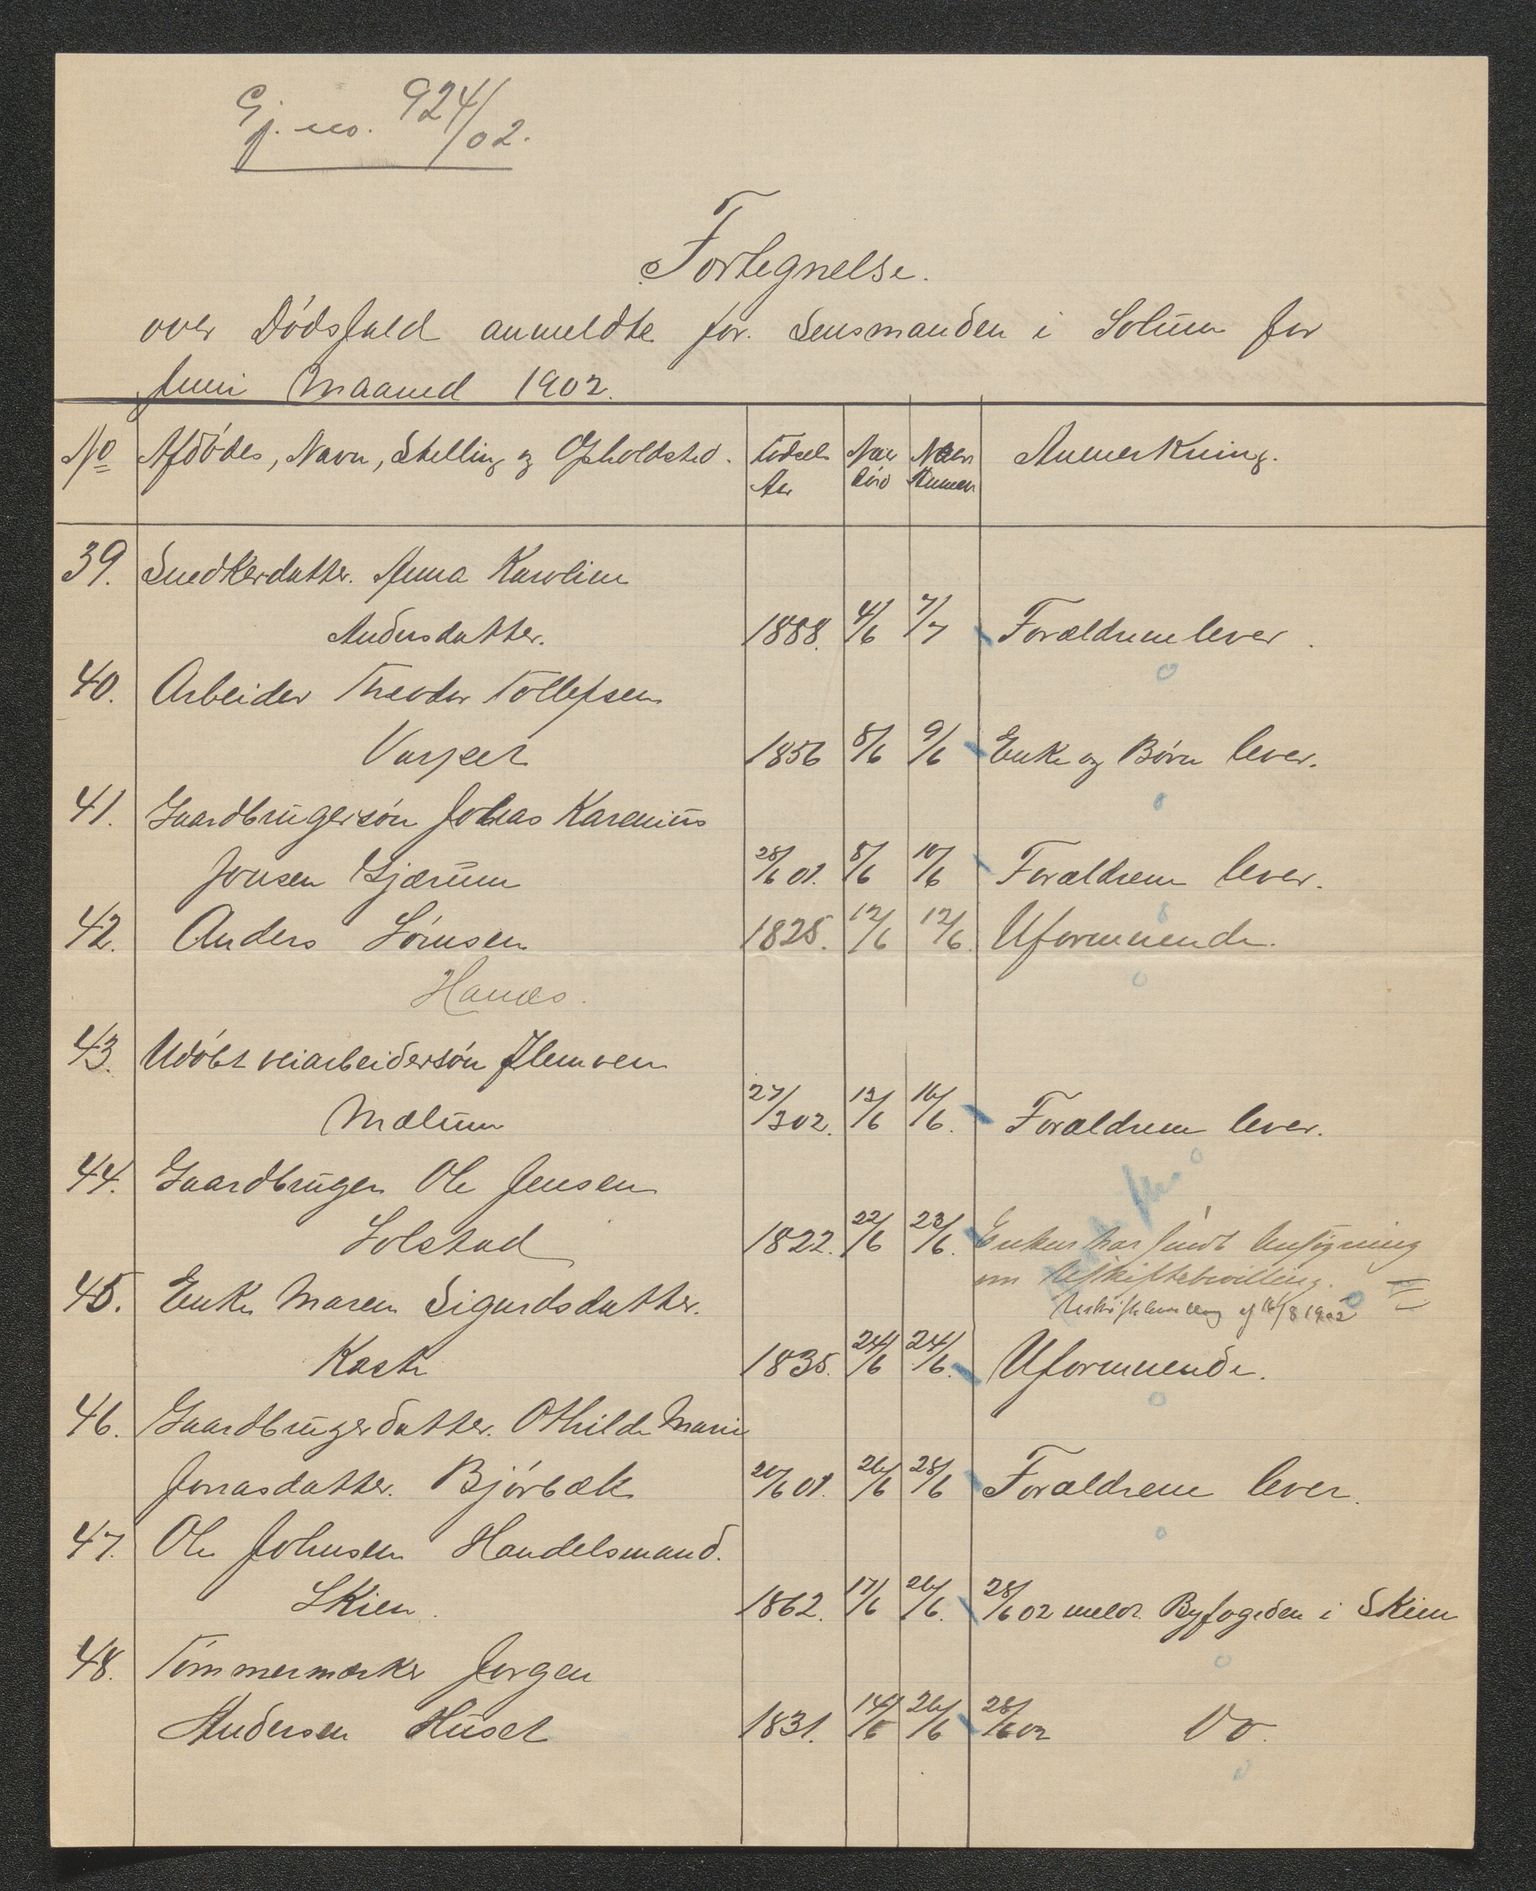 Gj. no. 924/02.
Fortegnelse.
over Dødsfald anmeldte for Lensmanden i Solum for
Juni Maaned 1902.
No Afdødes, Navn, Stilling og Opholdsted. Fødsels Aar Naar død Naar Anmen Anmerkning.
39. Snedkerdatter. Anna Karoline
Andersdatter. 1888. 4/6 7/7 Forældrene lever.
40. Arbeider Theodor Tollefsen
1856 8/6 9/6 Enke og Børn lever.
41. Gaardbrugersøn Johas Karenius
Jonsen Gjærum 28/6 01. 8/6 10/6 Forældrene lever.
42. Anders 1825. 12/6 12/6. Uformuende.
43. Udøbt veiarbeidersøn
Mælum 27/3 02. 13/6 16/6. Forældrene lever.
44. Gaardbruger Ole Jensen
Solstad 1822. 22/6 23/6. Enken har sendt Ansøgning
om Uskiftebevilling.
Uskiftebevilling af 16/8 1902
45. Enke Maren Sigurdsdatter.
Kaste 1835. 24/6 24/6. Uformuende.
46. Gaardbrugerdatter. Othilde Marie
Jonasdatter. Bjørbæk 20/6 01. 26/6 28/6 Forældrene lever.
47. Ole Johnsen Handelsmand.
Skien. 1862. 17/6 26/6. 28/6 02 meldt Byfogden i Skien
48. Tømmermærker Jørgen
Andersen Huset 1831. 14/6 26/6 28/6 02 Do.